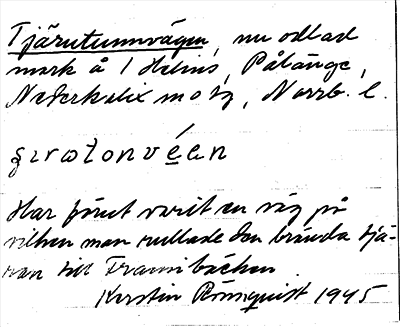 Tjärutunnvägen, nu odlad
mark å 1 Helins, Pålänge,
Nederkalix m o tg, Norrb. l.
ʂɪrɷtonvéen
Har förut varit en väg på
vilken man rullade den brända tjä-
ran till Frannbäcken.
Kerstin Rönnquist 1945